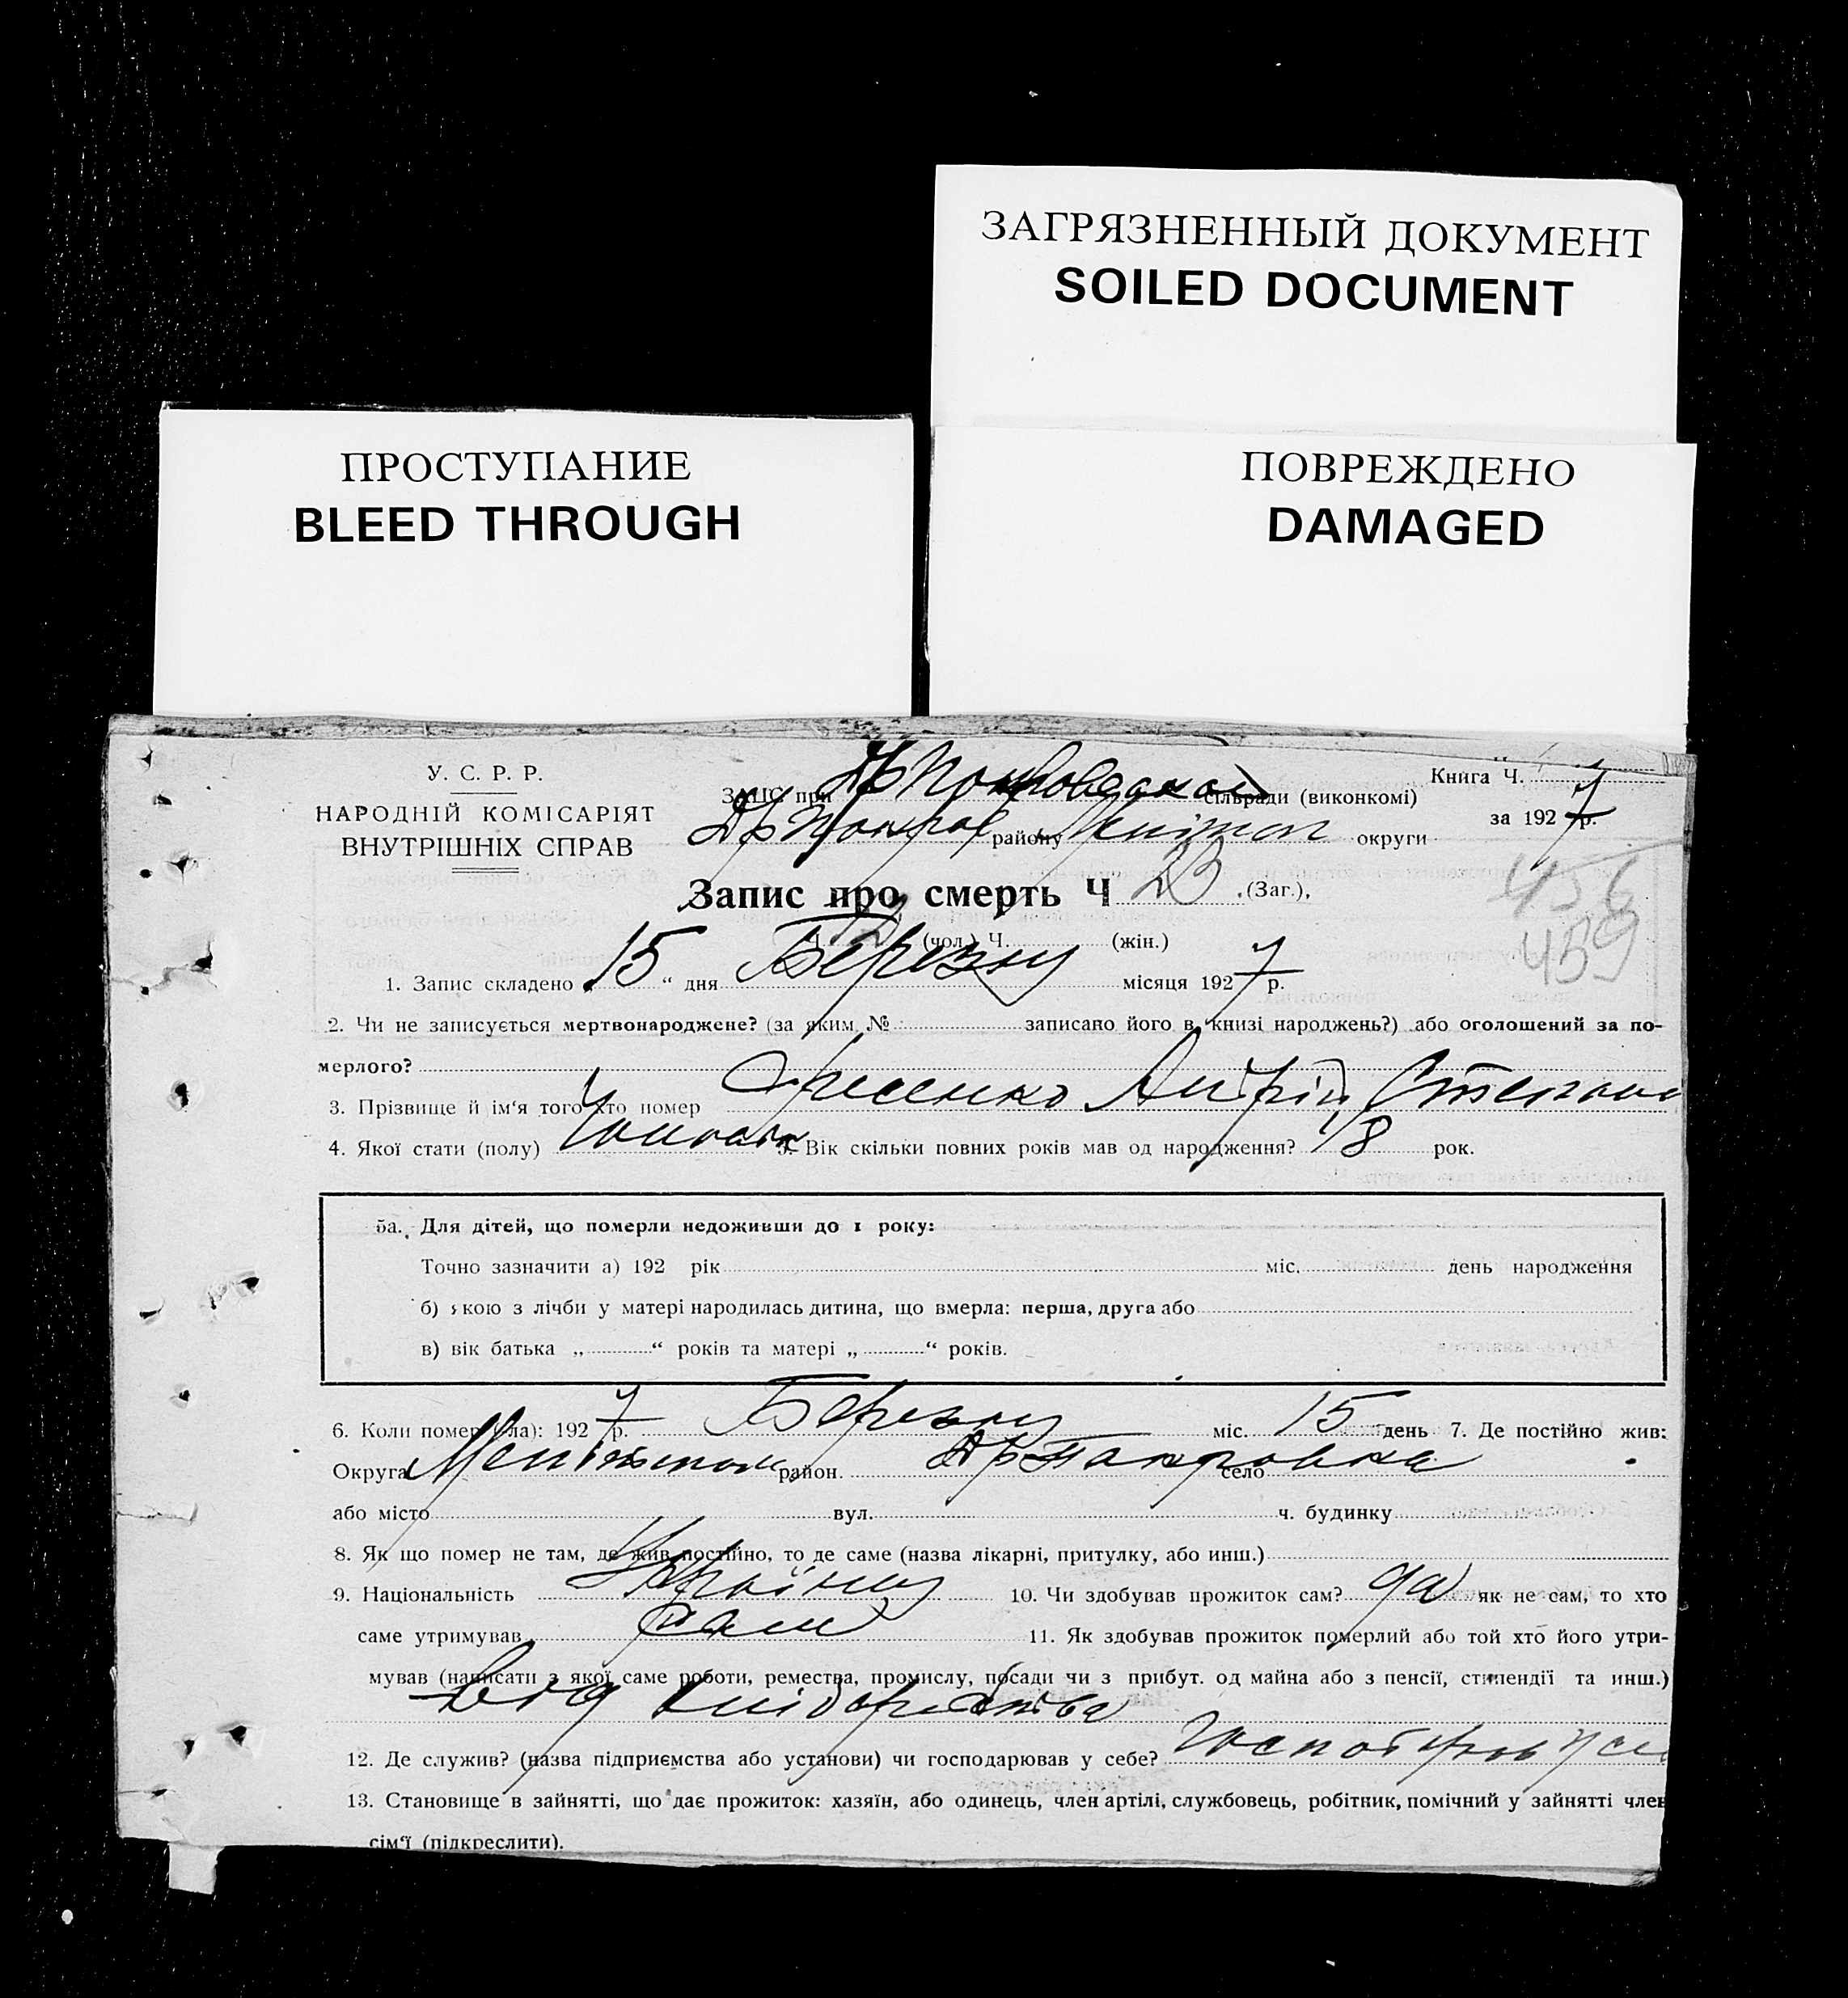 ЗАГРЯЗНЕННЫЙ ДОКУМЕНТ
SOILED DOCUMENT
ПРОСТУПАНИЕ
BLEED THROUGH
ПОВРЕЖДЕНО
DAMAGED
У. С. Р. Р.
НАРОДНІЙ КОМІСАРІЯТ
ВНУТРІШНІХ СПРАВ
ЗАПС при сільради (виконкомі)
району округи
Книга Ч.
за 1927 р.
456
459
Запис про смерть Ч 23 (Заг.),
Ч. 12 (чол.) Ч. (жін.)
1. Запис складено 15 “ дня Березня місяця 1927 р.
2. Чи не записується мертвонароджене? (за яким № записано його в книзі народжень?) або оголошений за по-
мерлого?
3. Прізвище й ім'я того хто помер Андрій Степанов
4. Якої стати (полу) 5. Вік скільки повних років мав од народження? 18 рок.
5а. Для дітей, що померли недоживши до 1 року:
Точно зазначити а) 192 рік міс. день народження
б) якою з лічби у матері народилась дитина, що вмерла: перша, друга або
в) вік батька „ “ років та матері „ “ років.
6. Коли помер (ла): 1927 р. Березня міс. 15 день 7. Де постійно жив:
Округа район. село
або місто вул. ч. будинку
8. Як що помер не там, де жив постійно, то де саме (назва лікарні, притулку, або инш.)
9. Національність 10. Чи здобував прожиток сам? да як не сам, то хто
саме утримував сам 11. Як здобував прожиток померлий або той хто його утри-
мував (написати з якої саме роботи, ремества, промислу, посади чи з прибут. од майна або з пенсії, стипендії та инш.)
Від
12. Де служив? (назва підприємства або установи) чи господарював у себе?
13. Становище в зайнятті, що дає прожиток: хазяїн, або одинець, член артілі, службовець, робітник, помічний у зайнятті член
сім'ї (підкреслити).